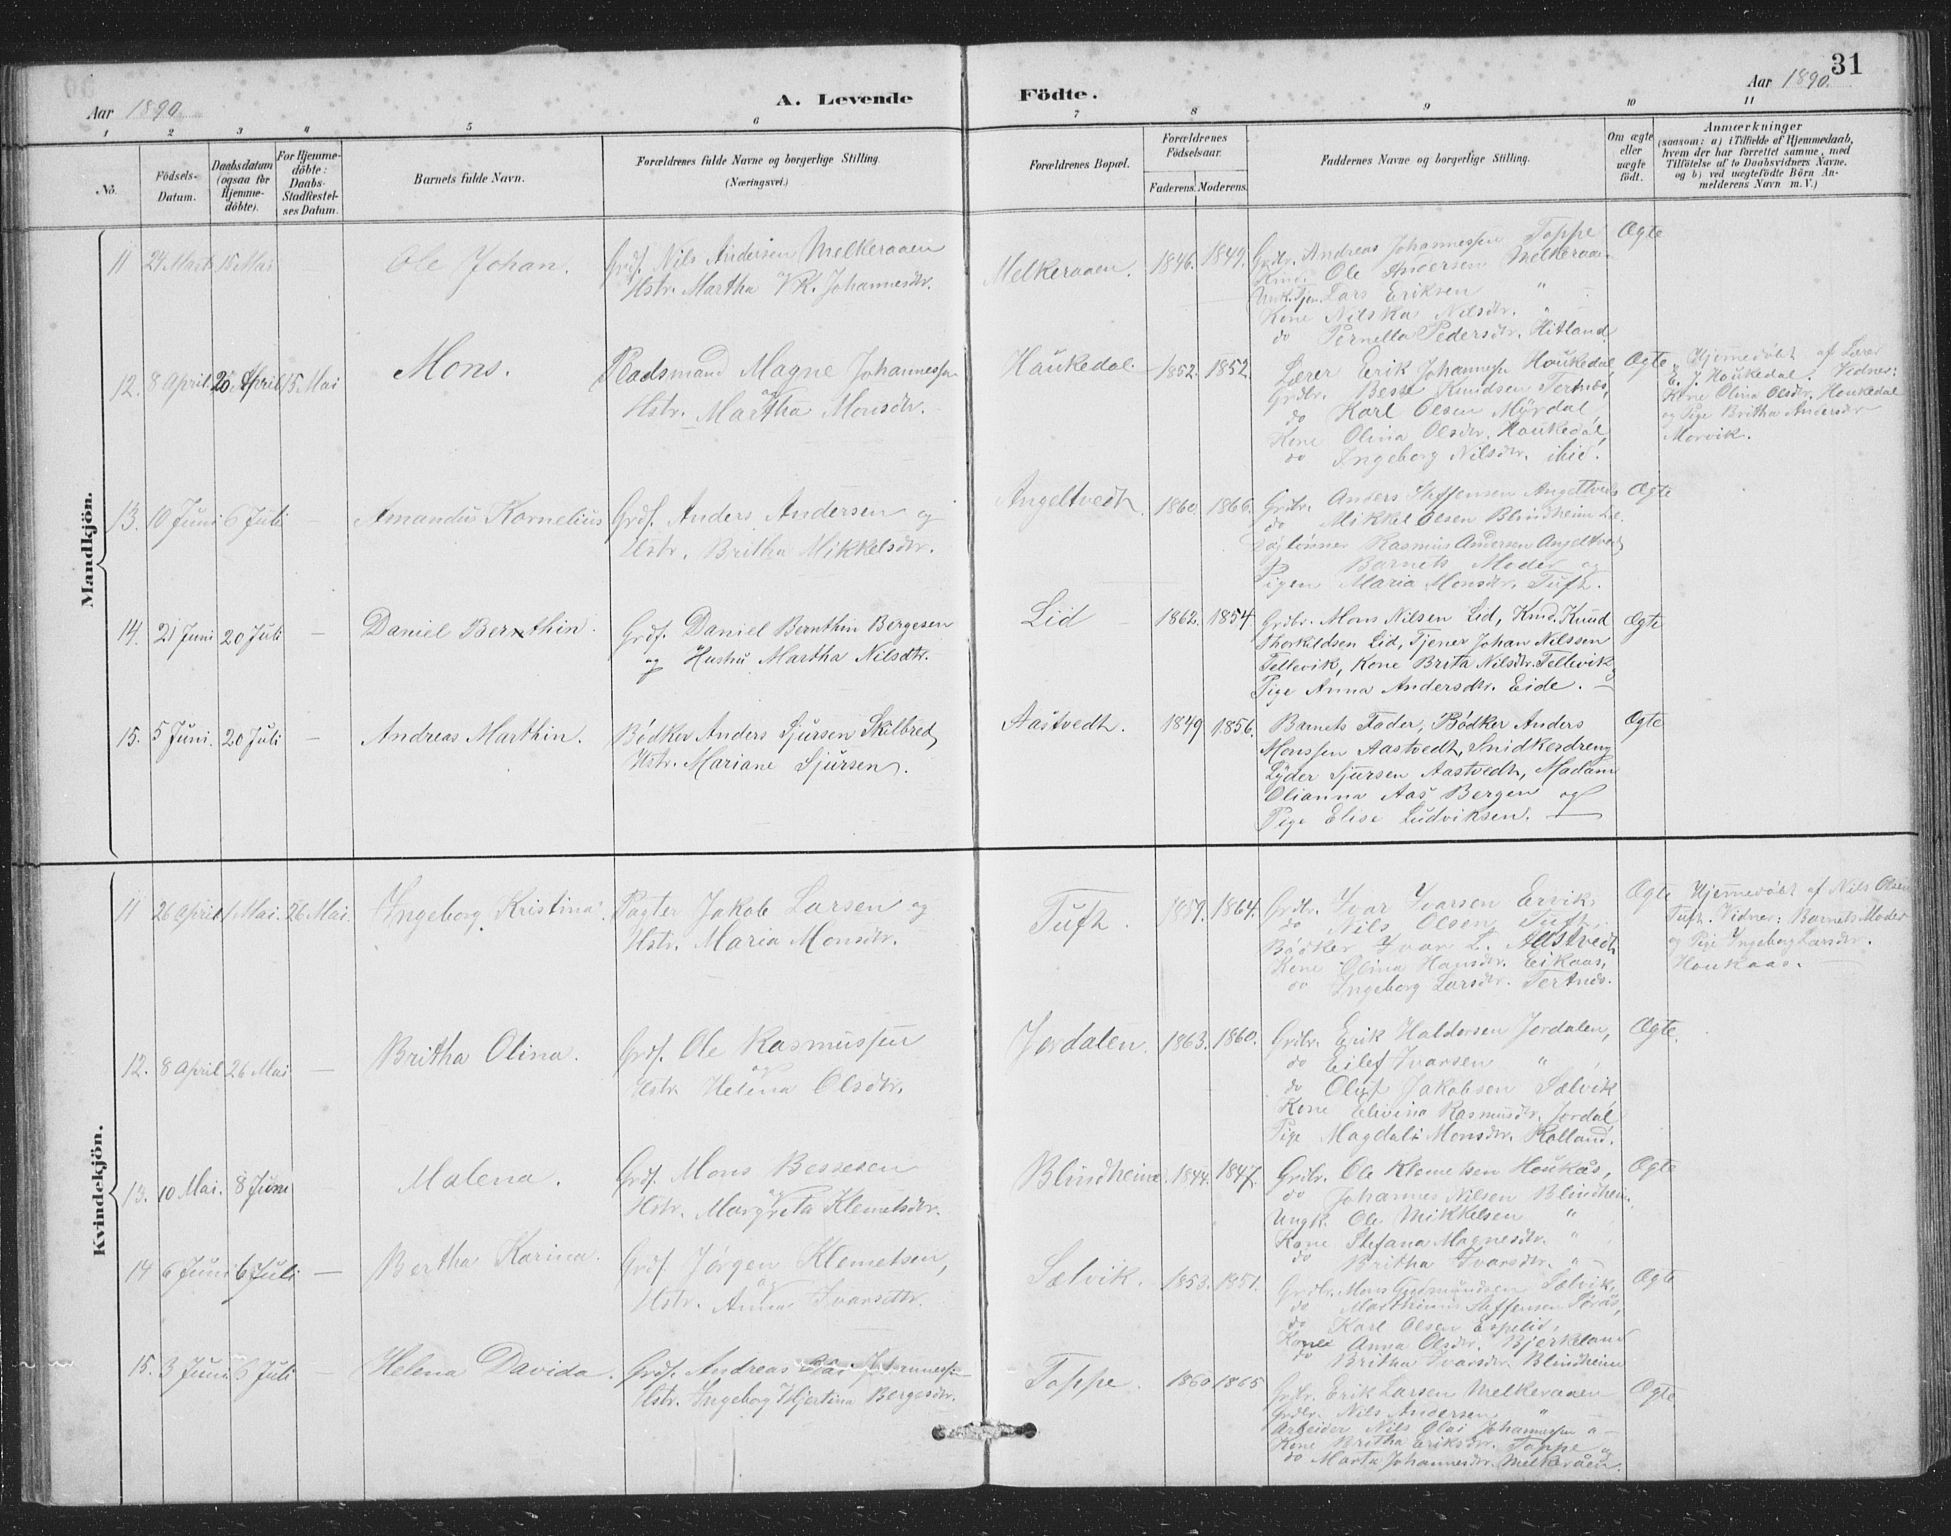 31
Aar 1890
A. Levende
Födte.
Aar 1890.
1 2 3 4 5 6 7 8 9 10 11
No.
Födsels-
Datum.
Daabsdatum
(ogsaa for
Hjemme-
döbte).
For Hjemme-
döbte:
Daabs-
Stadfestel-
ses Datum.
Barnets fulde Navn.
Forældrenes fulde Navne og borgerlige Stilling.
(Næringsvei.)
Forældrenes Bopæl.
Forældrenes
Födselsaar.
Faderens. Moderens.
Faddernes Navne og borgerlige Stilling.
Om ægte
eller
uægte
födt.
Anmærkninger
(saasom: a) i Tilfælde af Hjemmedaab,
hvem der har forrettet samme, med
Tilföielse af to Daabsvidners Navne.
og b) ved uægtefödte Börn An-
melderens Navn m. V.)
Mandkjön.
11 24 Marts 15 Mai
Ole Johan.
Grdf. Nils Andersen Melkeraaen
Hstr. Martha VK. Johannesdtr.
Melkeraaen. 1846. 1849.
Grdbr. Andreas Johannessen Toppe
Ole Andersen Melkeraaen
Ungk. Tjen. Lars Eriksen "
Kone Nilska Nilsdtr.
do Pernella Pedersdtr. Hitland.
Ægte
12. 8 April 20 April 15. Mai
Mons.
Baadsmand Magne Johannessen
og
Hstr. Martha Monsdtr.
Haukedal. 1852. 1852.
Lærer Erik Johannesen Houkedal,
Grdbr. Besse Knudsen Tertnæs,
do Karl Olsen Myrdal,
Kone Olina Olsdtr. Haukedal,
do Ingeborg Nilsdtr. ibid.
Ægte
Hjemmedöbt af Lærer
E. J. Houkedal. Vidner:
Kone Olina Olsdtr. Houkedal
og Pige Britha Andersdtr
Morvik.
13. 10 Juni 6 Juli —
Amandus Kornelius
Grdf. Anders Andersen og
Hstr. Britha Mikkelsdtr.
Angeltvedt 1860 1866.
Grdbr. Anders Steffensen Angeltvedt
do Mikkel Olsen Blindheim
Rasmus Andersen Angeltvedt
Barnets Moder og
Pigen Maria Monsdtr. Tuft.
Ægte
14. 21 Juni 20 Juli —
Daniel Bernthin.
Grdf. Daniel Bernthin Bergesen
og Hustru Martha Nilsdtr.
Lid 1862. 1854.
Grdbr. Mons Nilsen Lid, Kmd. Knud
Thorkildsen Lid, Tjener Johan Nilssen
Tellevik, Kone Brita Nilsdtr. Tellevik,
Pige Anna Andersdtr. Eide. —
Ægte
15. 5 Juni. 20 Juli —
Andreas Marthin.
Bödker Anders Sjursen Skilbred,
Hstr. Mariane Sjursen.
Aastvedt. 1849 1856.
Barnets Fader, Bödker Anders
Monssen Aastvedt, Snidkerdreng
Lyder Sjursen Aastvedt, Madam
Olianna Aas Bergen og
Pige Elise Ludviksen. —
Ægte
Kvindekjön.
11 26 April 1 Mai. 26 Mai.
Ingeborg Kristina.
Pagter Jakob Larsen og
Hstr. Maria Monsdtr.
Tuft. 1864.
Grdbr. Ivar Ivarsen Eirik,
do Nils Olsen Tuft,
Bödker Ivar L. Aastvedt,
Kone Olina Hansdtr. Eikaas,
do Ingeborg Larsdtr. Tertnes.
Ægte
Hjemmedöbt af Nils Olsen
Tuft. Vidner: Barnets Moder
og Pige Ingeborg Larsdtr.
Houkaas. —
12. 8 April 26 Mai —
Britha Olina.
Grdf. Ole Rasmussen
og
Hstr. Helena Olsdtr.
Jordalen. 1863. 1860.
Grdbr. Erik Haldorsen Jordalen,
do Eilef Ivarsen "
do Oluf Jakobsen Sælvik
Kone Elivina Rasmusdtr. Jordal,
Pige Magdali Monsdtr. Holland.
Ægte.
13. 10 Mai. 8 Juni —
Malena.
Grdf. Mons Bessesen
og
Hstr. Margreta Klemetsdtr.
Blindheim. 1844. 1847.
Grdbr. Ole Klemetsen Houkås,
do Johannes Nilsen Blindheim.
Ungk. Ole Mikkelsen "
Kone Stefana Magnesdtr. "
do Britha Ivarsdtr. "
Ægte
14 6 Juni 6 Juli —
Bertha Karina.
Grdf. Jørgen Klemetsen,
og
Hstr. Anna Ivarsdtr.
Sælvik. 1853. 1851.
Grdbr. Mons Gudmundsen Sælvik,
do Marthinus Steffensen
do Karl Olsen Espelid,
Kone Anna Olsdtr. Bjerkeland
do Britha Ivarsdtr. Blindheim
Ægte
15. 3 Juni 6 Juli —
Helena Davida.
Grdf. Andreas Johannessen
Hstr. Ingeborg Hjertina Bergesdtr.
Toppe. 1860 1865
Grdbr. Erik Larsen Melkeraaen
Grdbr. Nils Andersen "
Arbeider Nils Olai Johannessen
Kone Britha Eriksdtr. Toppe og
do Marta Johannesdtr. Melkeråen.
Ægte